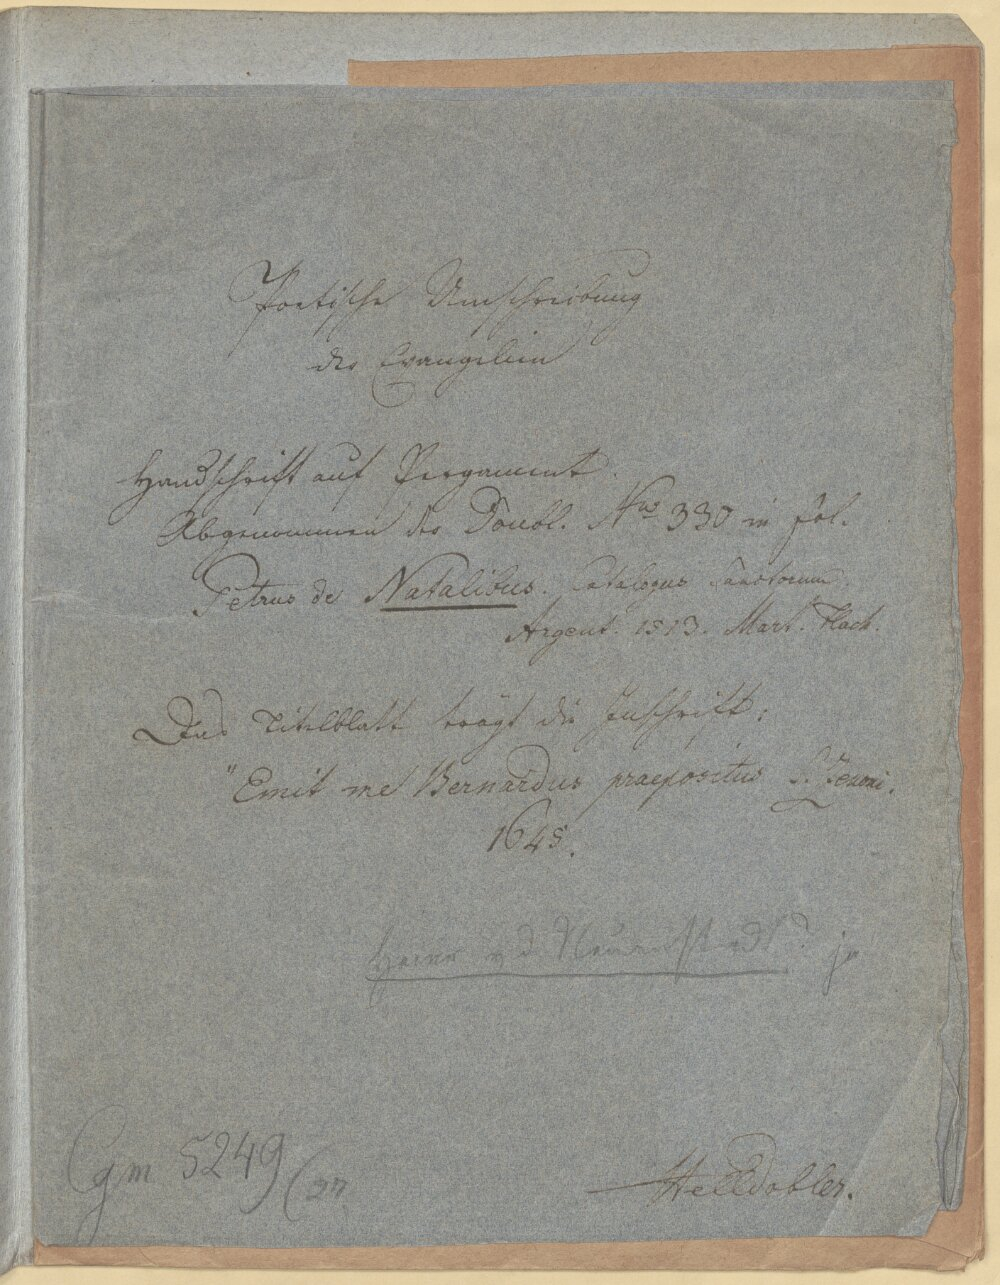 Poetische Umschreibung
der Evangelien
Handschrift auf Pergament.
Abgenommen der Doubl. Nro 330 in fol.
Petrus de Natalibus. Catalogus Sanctorum.
Argent. 1513. Mart. Flach.
Das Titelblatt trägt die Inschrift:
"Emit me Bernardus praepositus S. Zenoni.
1645.
Heinr v d Neuenstadt? ja
Cgm 5249 (27
Helldobler.